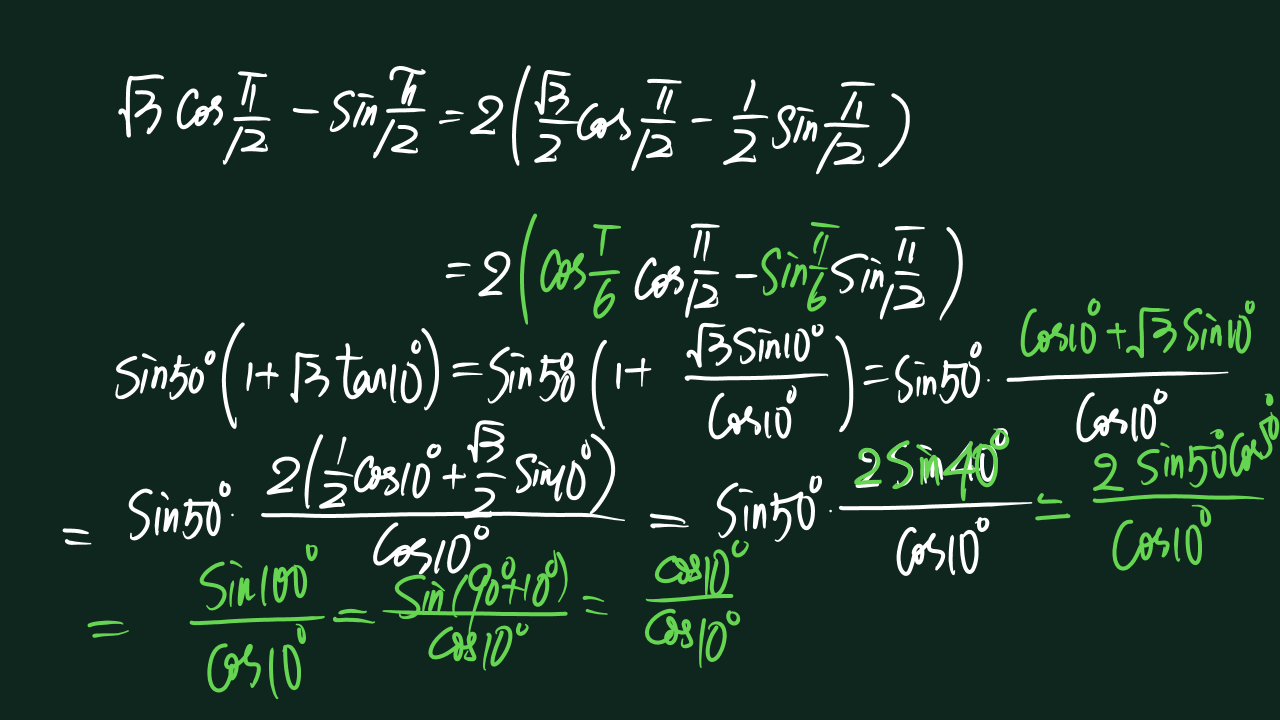 √3 cos π/12 - sin π/12 = 2(√3/2 cos π/12 - 1/2 sin π/12)
= 2(cos π/6 cos π/12 - sin π/6 sin π/12)
sin50°(1+√3 tan10°) = sin50°(1+ √3sin10°/cos10°) = sin50°· cos10°+√3sin10°/cos10°
= sin50°· 2(1/2cos10°+√3/2 sin10°)/cos10° = sin50°· 2sin40°/cos10° = 2 sin50°cos50°/cos10°
= sin100°/cos10° = sin(90°+10°)/cos10° = cos10°/cos10°